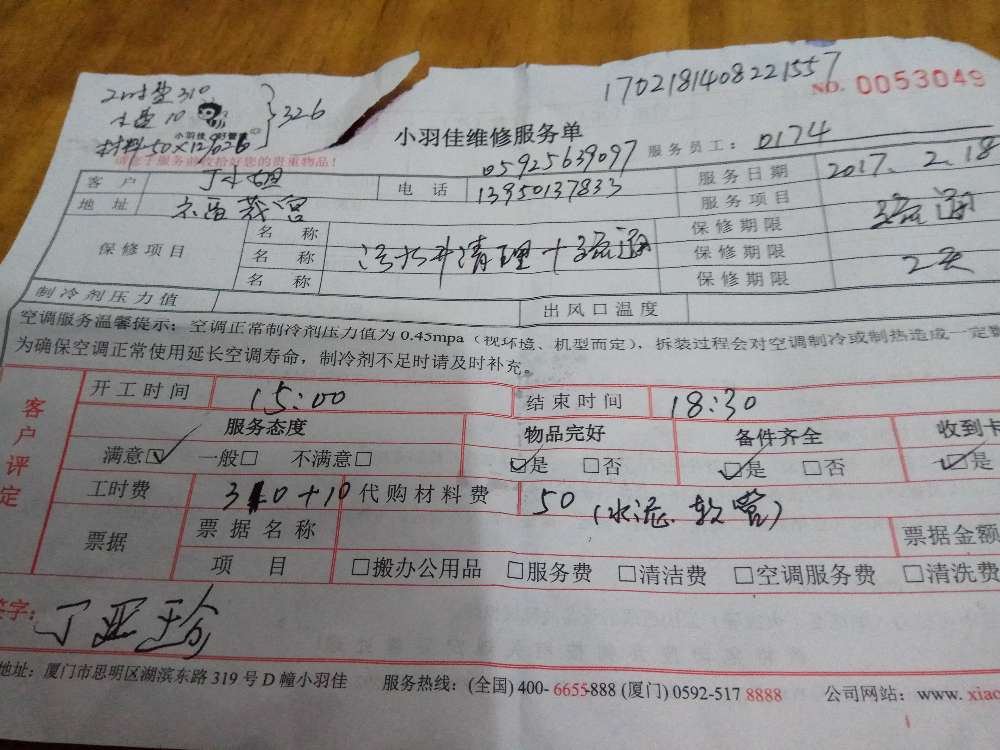 1702181408221557
NO. 0053049
工时费310
水泥10
材料50×12%=6
}326
小羽佳
小羽佳维修服务单
服务员工: 0174
05925639097
客户 丁小姐 电话 13950137833 服务日期 2017.2.18
地址 服务项目 疏通
保修项目 名称 保修期限
名称 污水井清理+疏通 保修期限 2天
名称 保修期限
制冷剂压力值 出风口温度
空调服务温馨提示: 空调正常制冷剂压力值为0.45mpa(视环境、机型而定), 拆装过程会对空调制冷或制热造成一定
为确保空调正常使用延长空调寿命, 制冷剂不足时请及时补充。
客户评定
开工时间 15:00 结束时间 18:30
服务态度 物品完好 备件齐全 收到卡
满意☑ 一般□ 不满意□ ☑是 □否 ☑是 □否 ☑是
工时费 310+10 代购材料费 50(水泥、软管)
票据 票据名称 票据金额
项目 □搬办公用品 □服务费 □清洁费 □空调服务费 □清洗费
签字: 丁亚珍
地址: 厦门市思明区湖滨东路319号D幢小羽佳 服务热线: (全国) 400-6655-888 (厦门) 0592-517 8888 公司网站: www. xiao